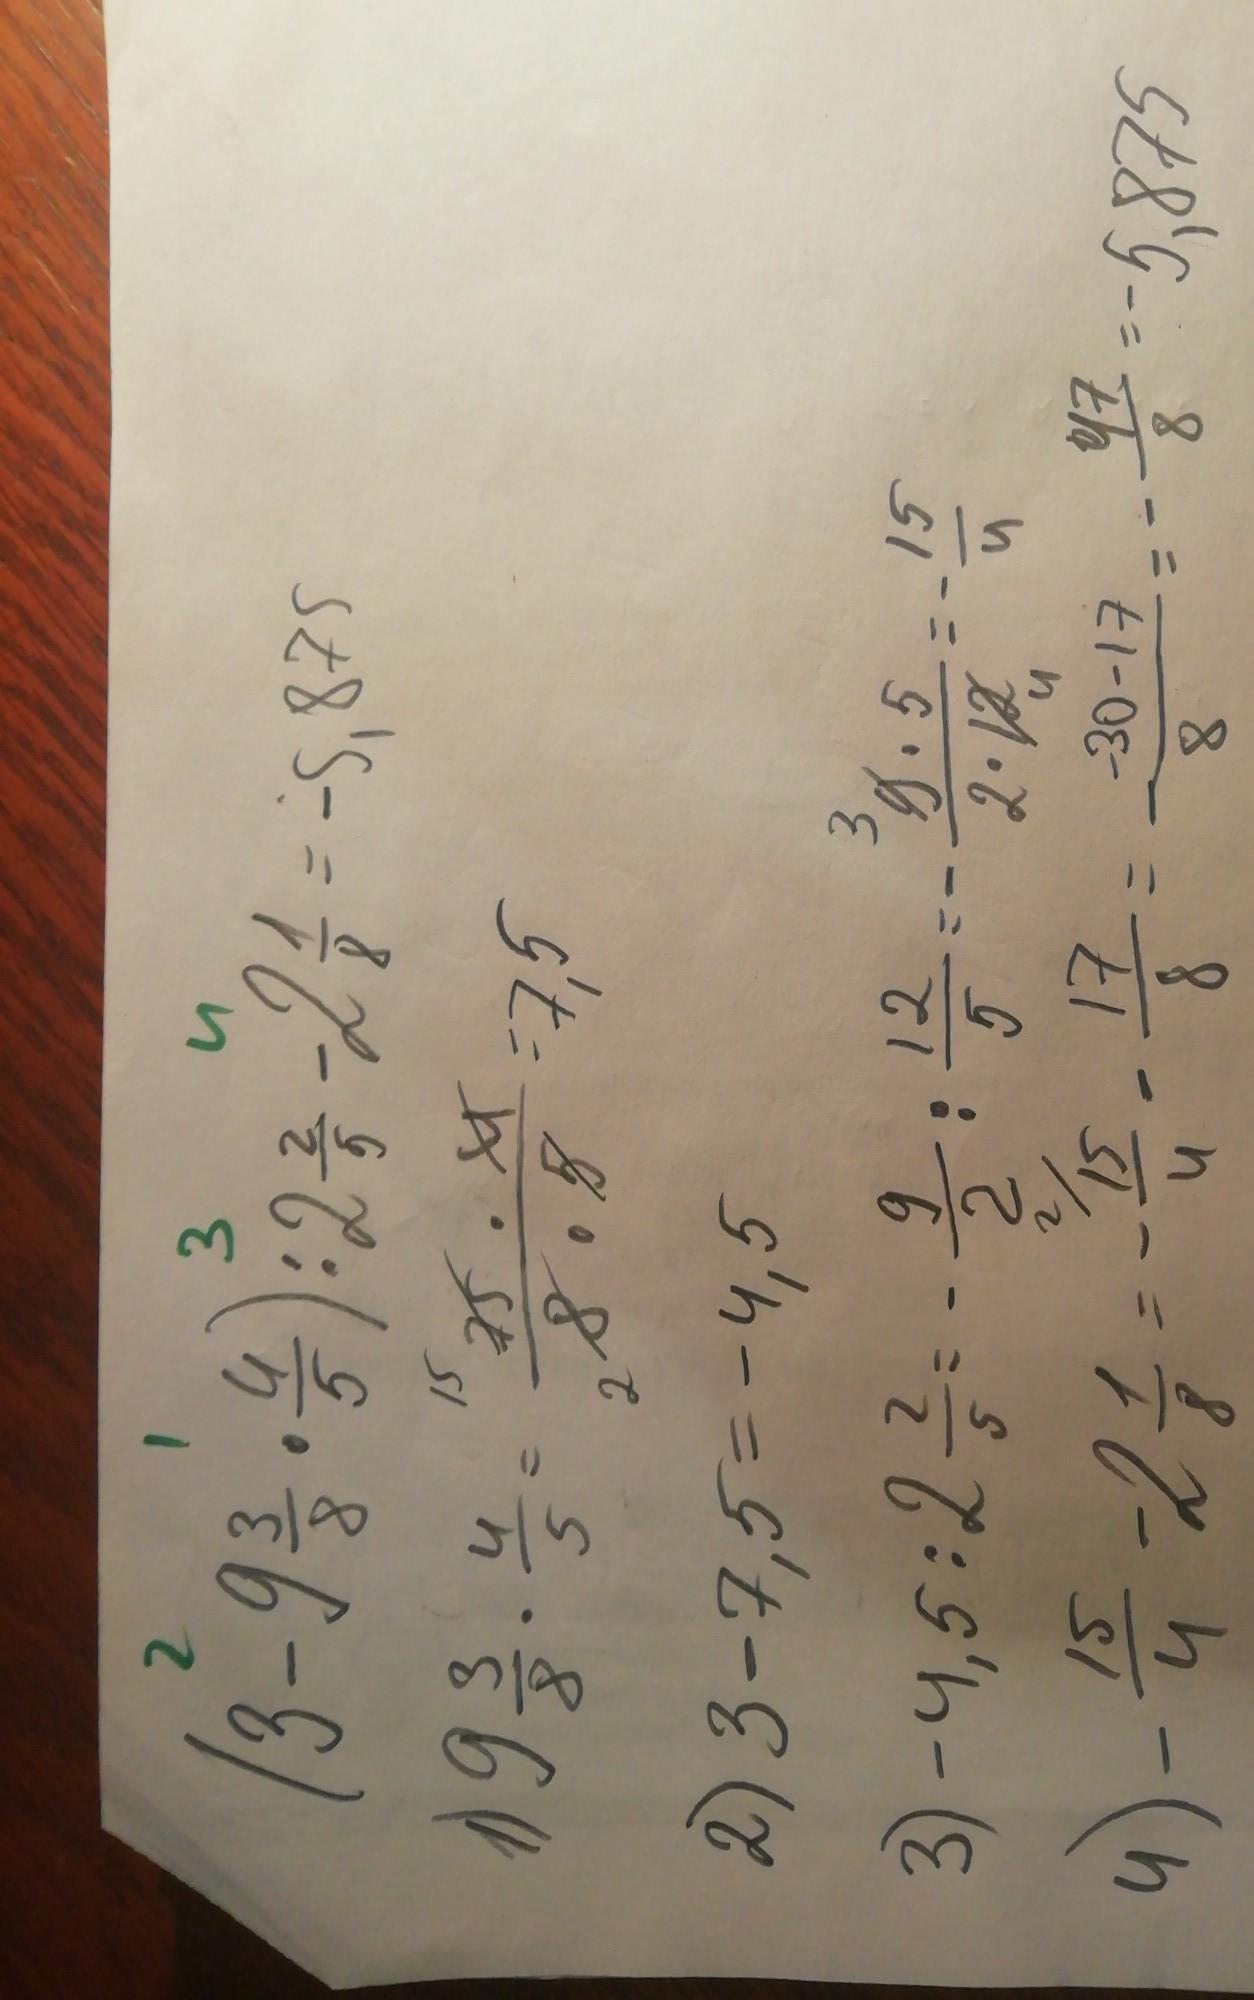 2 1 3 4
(3 - 9 3/8 · 4/5) : 2 2/5 - 2 1/8 = -5,875
1) 9 3/8 · 4/5 = 15 75 · 4 / 2 8 · 5 = 7,5
2) 3 - 7,5 = -4,5
3) -4,5 : 2 2/5 = - 9/2 : 12/5 = - 3 9 · 5 / 2 · 12 4 = - 15/4
4) - 15/4 - 2 1/8 = - 2/ 15/4 - 17/8 = - -30-17/8 = - 47/8 = -5,875